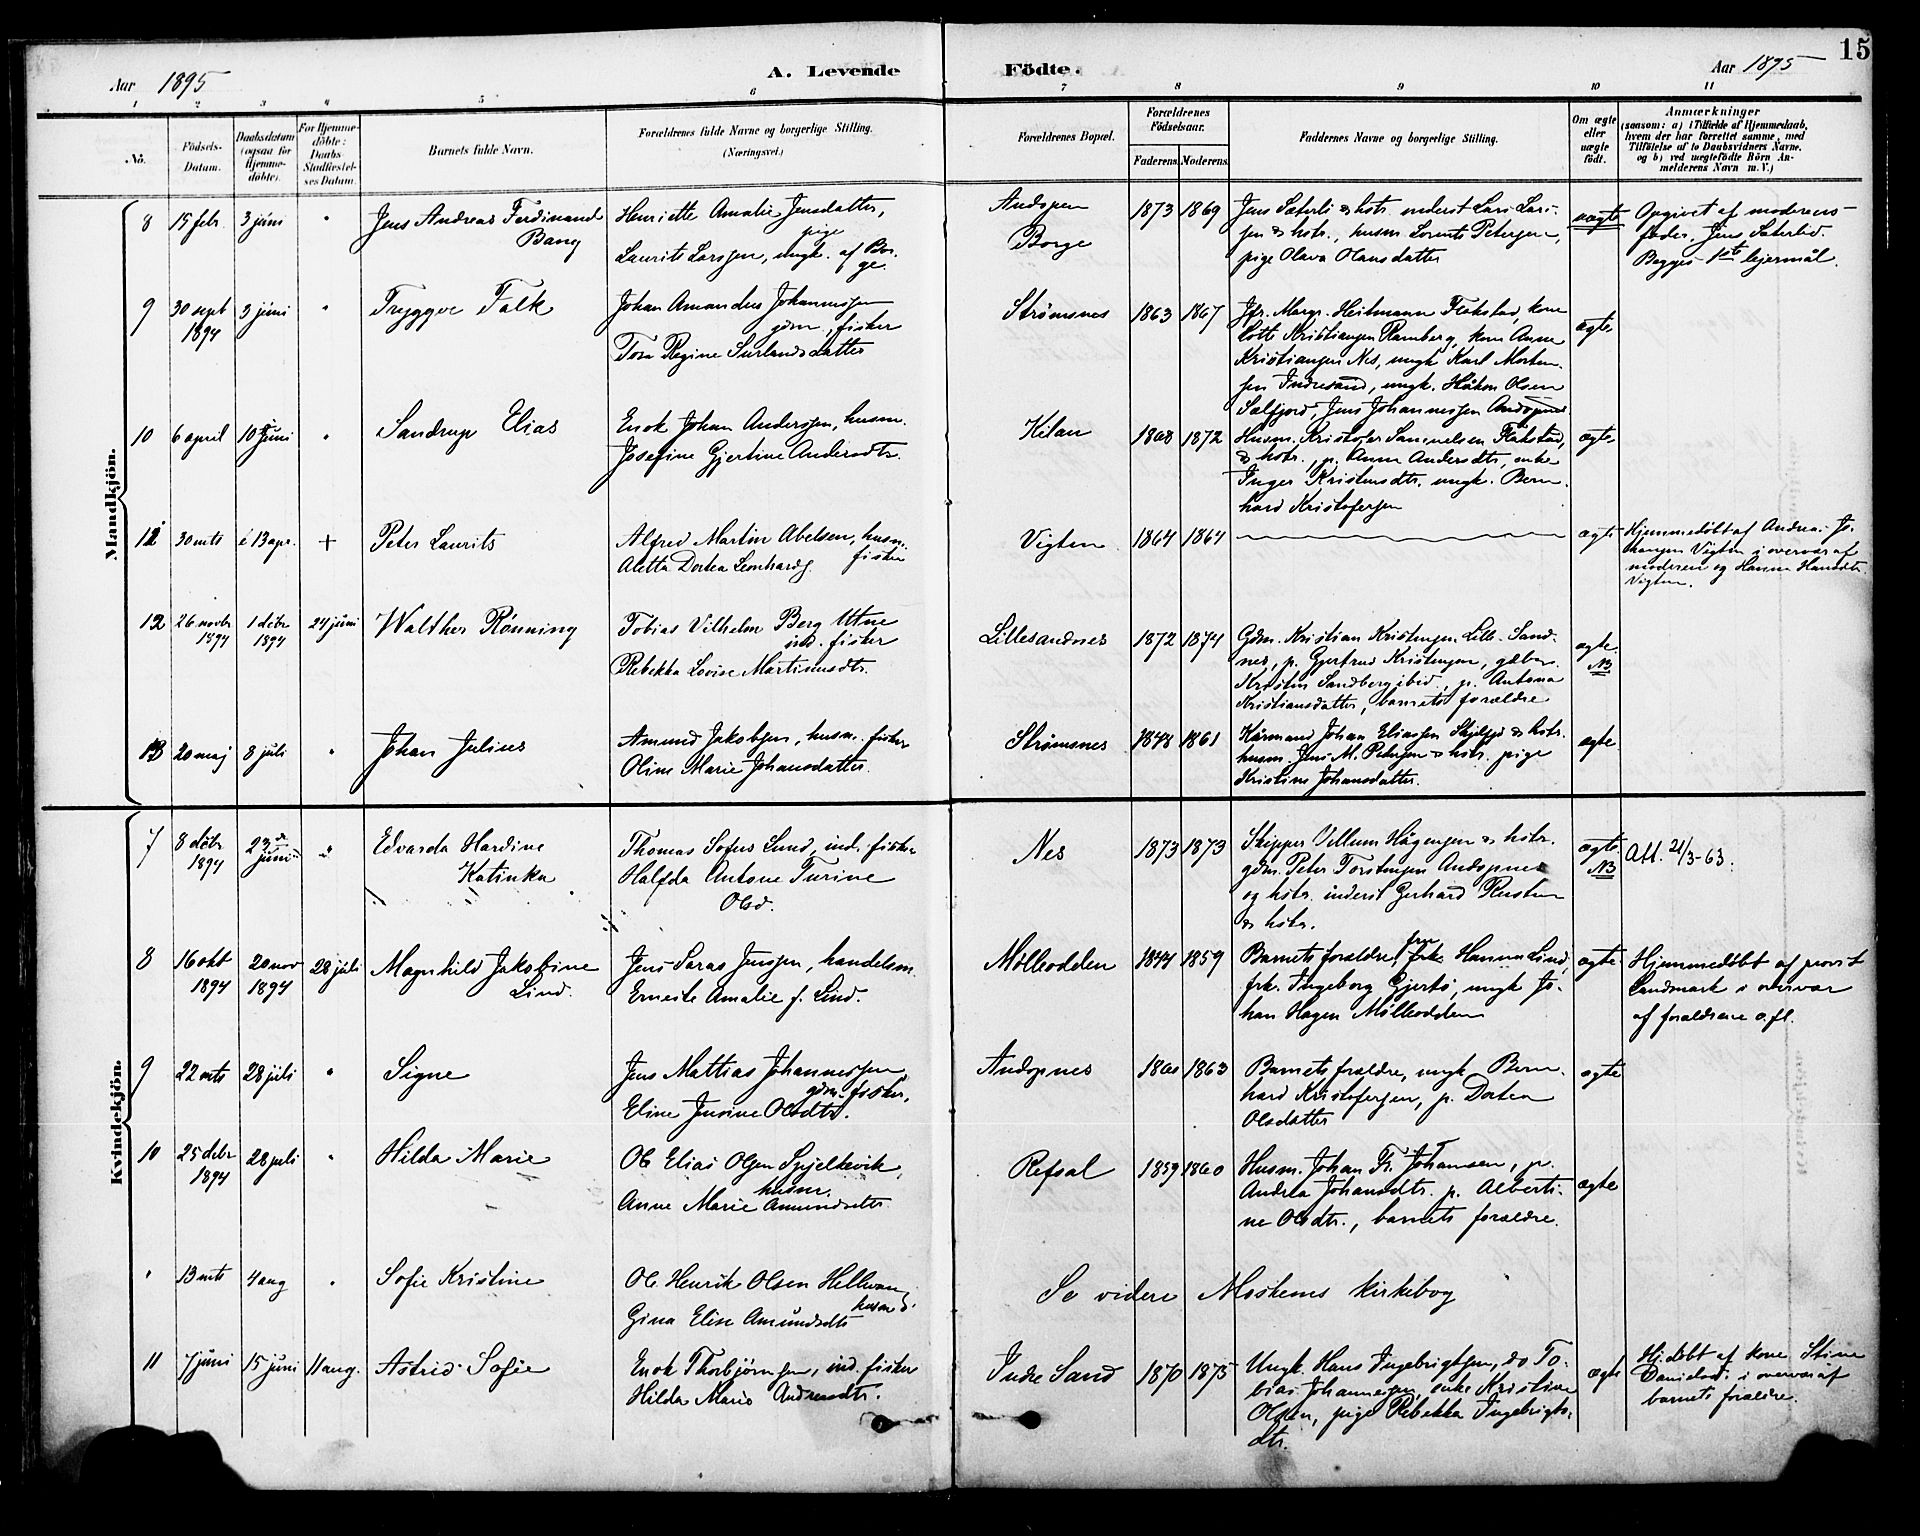 15
Aar 1895 A. Levende Födte. Aar 1895
1 2 3 4 5 6 7 8 9 10 11
No.
Födsels-
Datum.
Daabsdatum
(ogsaa for
Hjemme-
döbte).
For Hjemme-
döbte:
Daabs-
Stadfæstel-
ses Datum.
Barnets fulde Navn.
Forældrenes fulde Navne og borgerlige Stilling.
(Næringsvei.)
Forældrenes Bopæl.
Forældrenes
Födselsaar.
Faderens. Moderens.
Faddernes Navne og borgerlige Stilling.
Om ægte
eller
uægte
födt.
Anmærkninger
(saasom: a) i Tilfælde af Hjemmedaab,
hvem der har forrettet samme, med
Tilföielse af to Daabsvidners Navne,
og b) ved uægtefödte Börn An-
melderens Navn m. V.)
Mandkjön.
8 15 febr. 3 juni " Jens Andreas Ferdinand
Bang
Henriette Amalie Jensdatter,
pige
Laurits Larssen, ungk. af Bor-
ge.
Andopen
Borge
1873 1869
Jens Sæterli & hstr. inderst Lars Lar-
sen & hstr., husm. Lorents Petersen,
pige Olava Olausdatter
uægte
Opgivet af moderens
fader, Jens Sæterli.
Begges 1ste lejermål.
9 30 sept
1894
3 juni " Tryggve Falk
Johan Amandus Johannessen
gdm., fisker
Tora Regine Surlandsdatter
Strømsnes
1863 1867
Jfr. Marg. Heitmann Flakstad, kone
Lotte Kristiansen Ramberg, kone Anne
Kristiansen Nes, ungk. Karl Morten-
sen Indresand, ungk. Håkon Olsen
Sælfjord, Jens Johannessen Andopnes
ægte
10 6 april 10 juni " Sandrup Elias
Enok Johan Anderssen, husm.
Josefine Gjertine Andersdtr.
Kilan
1868 1872
Husm. Kristofer Samuelsen Flakstad,
& hstr., p. Anna Andersdtr., enke
Inger Kristensdtr. ungk. Bern-
hard Kristofersen
ægte
11 30 mts 13 apr. + Peter Laurits
Alfred Martin Abelsen, husm.
fisker
Aletta Dortea Leonhards.
Vigten
1864 1864
ægte
Hjemmedøbt af Andrea Jo-
hansen Vigten i overvær af
moderen og Hanna Hansdtr.
Vigten.
12 26 novbr
1894
1 debr
1894
24 juni Walther Rönning
Tobias Vilhelm Berg Utne
ind. fisker
Rebekka Lovise Martinusdtr.
Lillesandnes
1872 1874
Gdm. Kristian Kristensen Lille-Sand-
nes, p. Gjertrud Kristensen, gdbr.
Kristen Sandberg ibid, p. Antona
Kristiansdatter, barnets forældre
ægte
NB
13 20 maj 8 juli " Johan Julius
Amund Jakobsen, husm. fisker
Oline Marie Johansdatter.
Strømsnes
1848 1861
Kårmand Johan Eliassen Skjelfjd & hstr.
husm. Jens M. Petersen & hstr. pige
Kristine Johansdatter.
ægte
Kvindekjön.
7 8 debr
1894
23de
juni
" Edvarda Hardine
Katinka
Thomas Sofus Lund, ind. fisker
Halfda Antone Turine
Olsd.
Nes
1873 1873
Skipper Villum Hågensen & hstr.
gdm. Peter Torstensen Andopnes
og hstr. inderst Gerhard Rusten
& hstr.
ægte
NB
Att. 21/3-63.
8 16 okt
1894
20 nov
1894
28 juli Magnhild Jakobine
Lind.
Jens Saras Jenssen, handelsm.
Erneste Amalie f. Lind.
Mølleodden
1844 1859
Barnets forældre, fru Hanna Lind,
frk. Ingeborg Gjertø, ungk Jo-
han Hagen Mølleodden
ægte
Hjemmedøbt af provst
Landmark i overvær
af forældrene o.fl.
9 22 mts 28 juli " Signe
Jens Mattias Johannessen
gdm. fisker,
Eline Jensine Olsdtr.
Andopnes
1860 1863
Barnets forældre, ungk Bern-
hard Kristofersen, p. Dortea
Olsdatter
ægte
10 25 debr
1894
28 juli " Hilda Marie
Ole Elias Olsen Spjelkevik,
husm.
Anne Marie Amundsdtr
Refsal
1859 1860
Husm. Johan Fr. Johansen, p.
Andrea Johansdtr. p. Alberti-
ne Olsdtr., barnets forældre.
ægte
" 13 mts 4 aug " Sofie Kristine
Ole Henrik Olsen Hellvan
husm
Gina Elise Amundsdtr
Se videre Moskenes kirkebog
11 7 juni 15 juni 11 aug. Astrid Sofie
Enok Thorbjørnsen, ind. fisker
Hilda Marie Andreasdtr.
Indre Sand
1870 1875
Ungk. Hans Ingebrigtsen, do To-
bias Johannesen, enke Kristine
Olsen, pige Rebekka Ingebrigts-
dtr.
ægte
Hj. døbt af kone Stine
Danielsd. i overvær af
barnets forældre.